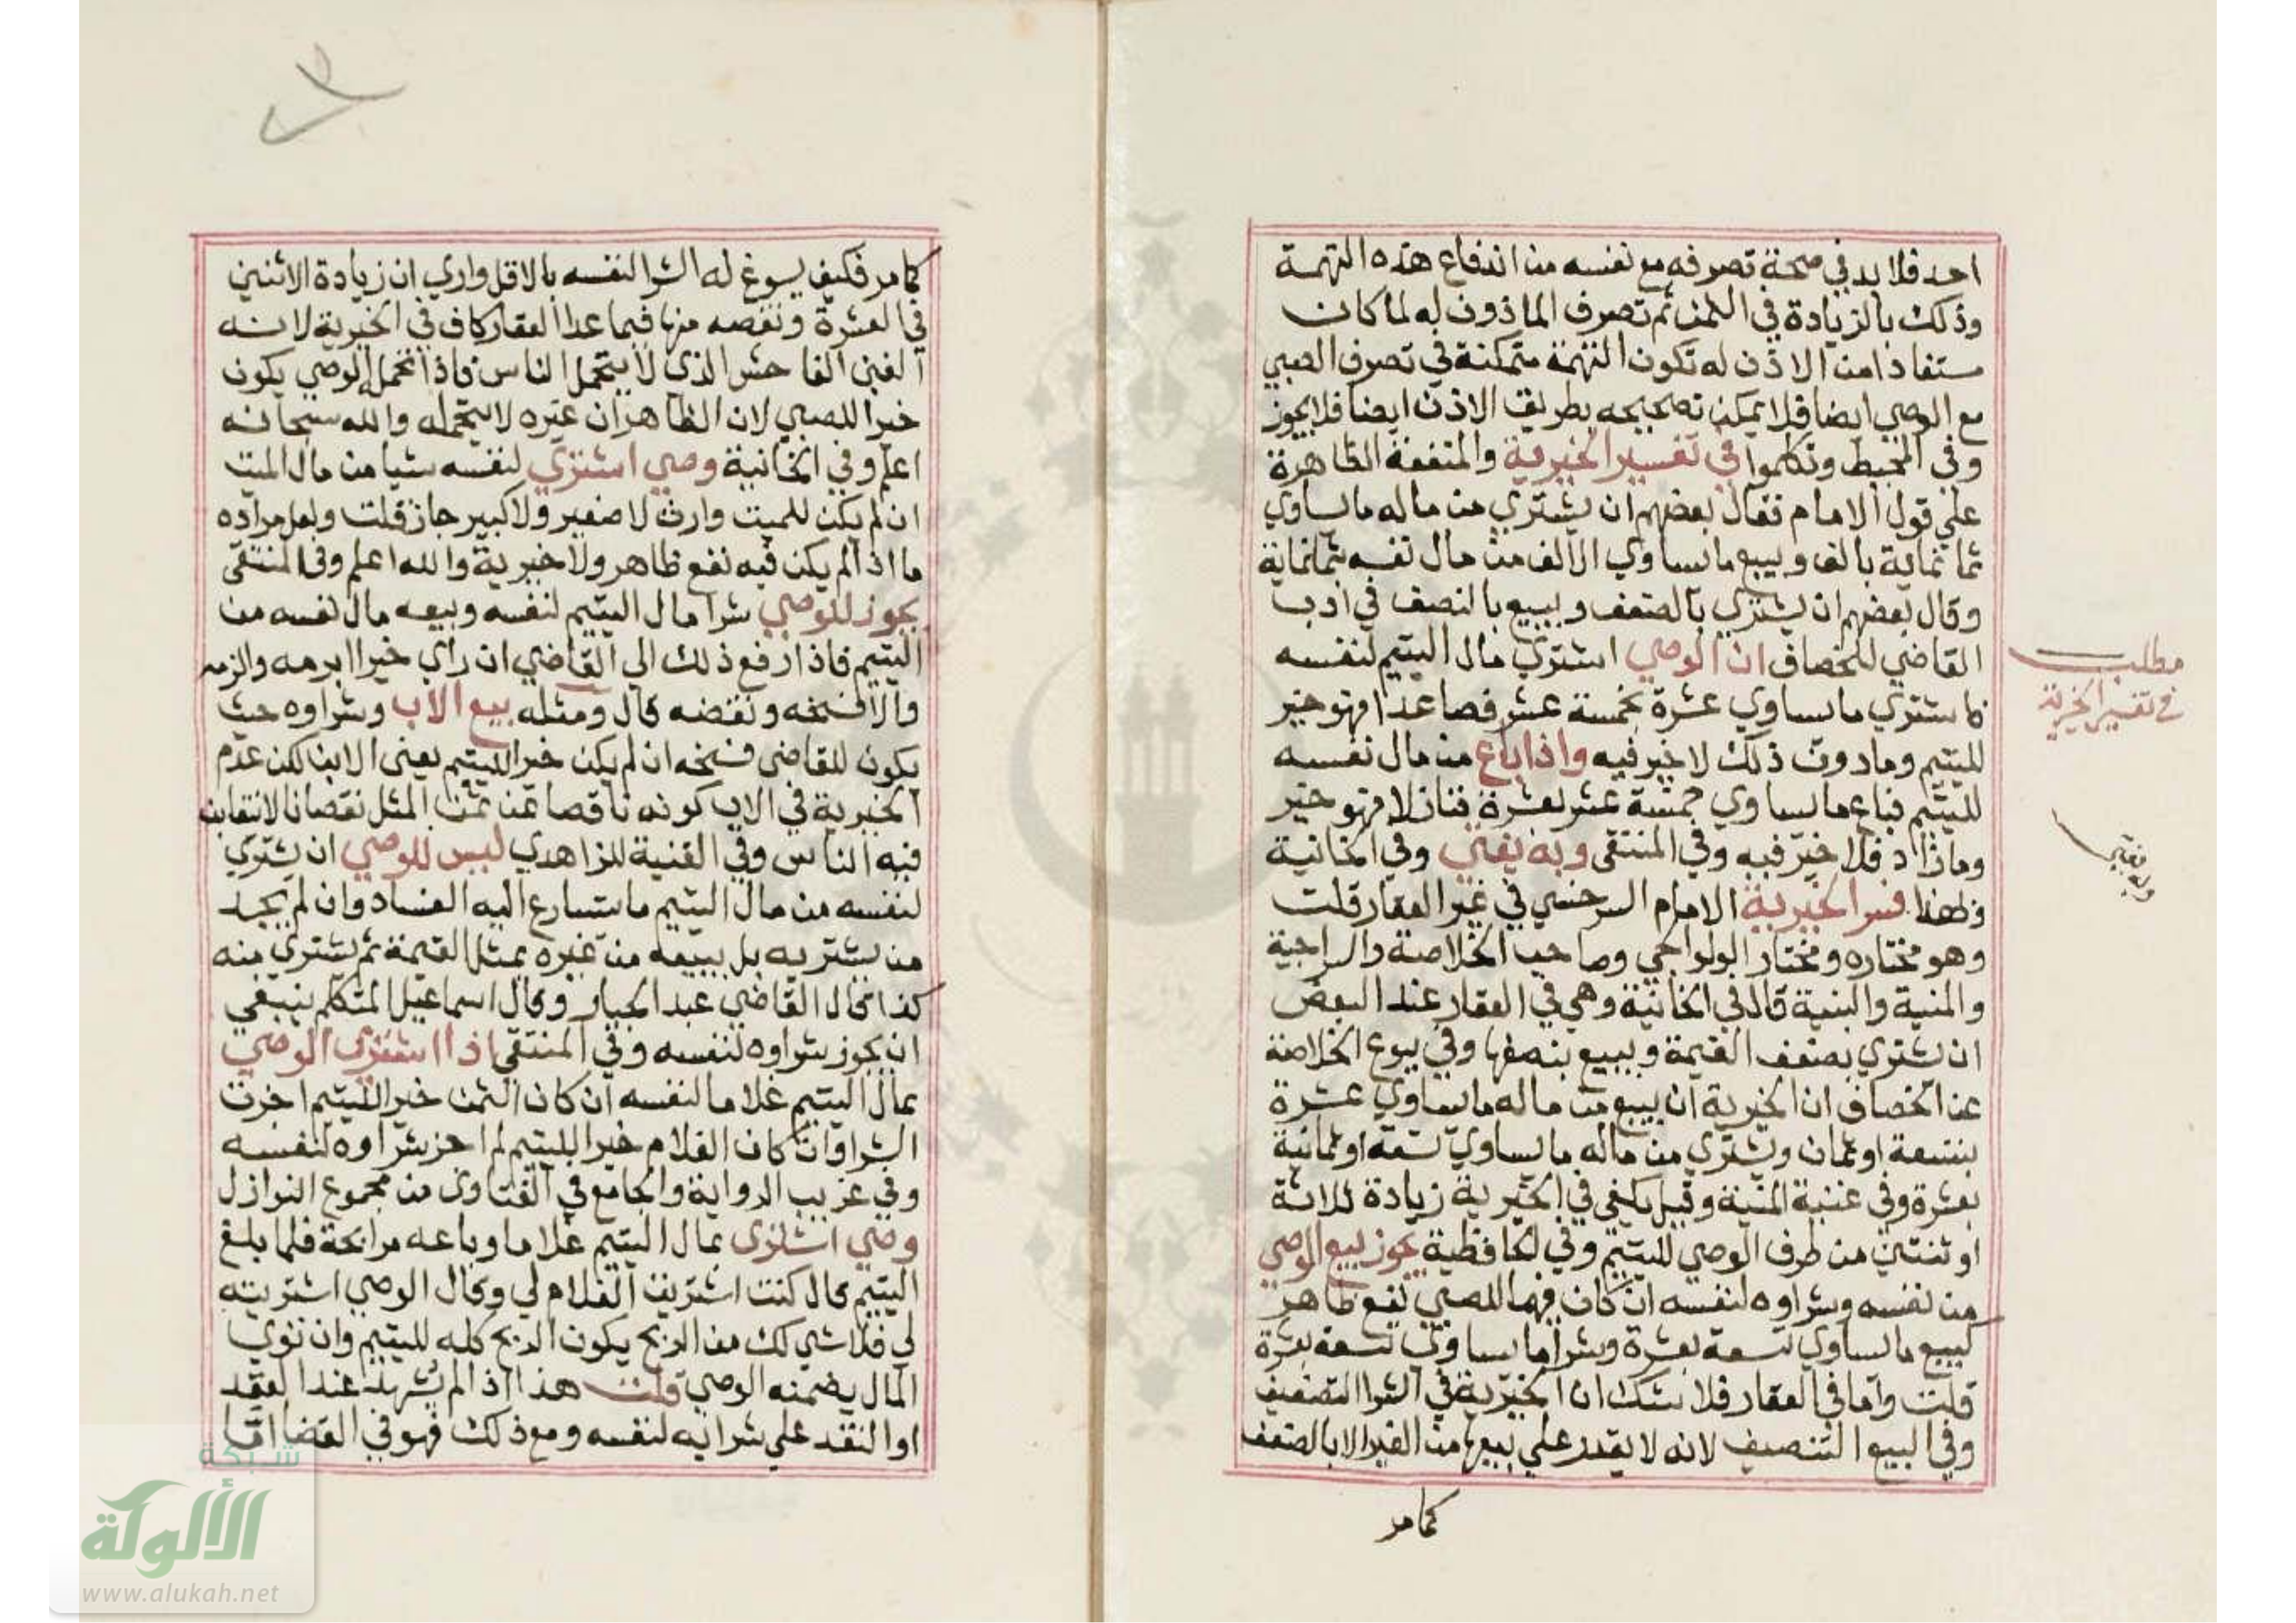 احد فلا بد في صحة تصرفه مع نفسه من اندفاع هذه التهمة
وذلك بالزيادة في الثمن ثم تصرف الماذون له لما كان
مستفادا من الاذن له تكون التهمة متمكنة في تصرف الصبي
مع الوصي ايضا فلا يمكن تصحيحه بطريق الاذن ايضا فلا يجوز
وفي المحيط وتكلموا في تفسير الخيرية والمنفعة الظاهرة
علي قول الامام فقال بعضهم ان يشتري من ماله ما يساوي
ثمانماية بالف ويبيع ما يساوي الالف من مال نفسه بثمانماية
وقال بعضهم ان يشتري بالضعف ويبيع بالنصف في ادب
القاضي للخصاف ان الوصي اشتري مال اليتيم لنفسه
كما يشتري ما يساوي عشرة بخمسة عشر فصاعدا فهو خير
لليتيم وما دون ذلك لا خير فيه واذا باع من مال نفسه
لليتيم فباع ما يساوي خمسة عشر بعشرة فنازلا فهو خير
وما زاد فلا خير فيه وفي المنتقى وبه يفتي وفي الخانية
وبهذا فسر الخيرية الامام السرخسي في غير العقار قلت
وهو مختاره ومختار الولوالجي وصاحب الخلاصة والسراجية
والمنية والبنية قال في الخانية وهي في العقار عند البعض
ان يشتري بضعف القيمة ويبيع بنصفها وفي بيوع الخلاصة
عن الخصاف ان الخيرية ان يبيع من ماله ما يساوي عشرة
بتسعة او ثمان ويشتري من ماله ما يساوي تسعة او ثمانية
بعشرة وفي غنية المنية وقيل يكفي في الخيرية زيادة ثلاثة
او ثنتين من طرف الوصي لليتيم وفي الحافظية يجوز بيع الوصي
من نفسه وشراوه لنفسه ان كان فيهما للصبي نفع ظاهر
كبيع ما يساوي تسعة بعشرة وشرا ما يساوي تسعة بعشرة
قلت واما في العقار فلا شك ان الخيرية في الشرا التضعيف
وفي البيع التنصيف لانه لا يقدر علي بيعها من الغير الا بالضعف
كما مر
مطلب
في تفسير الخيرية
وبه يفتي
كما مر فكيف يسوغ له الشرا لنفسه بالاقل واري ان زيادة الاثنين
في العشرة ونقصه منها فيما عدا العقار كاف في الخيرية لانه
الغبن الفاحش الذي لا يتحمل الناس فاذا تحمل الوصي يكون
خيرا للصبي لان الظاهر ان غيره لا يتحمله والله سبحانه
اعلم وفي الخانية وصي اشتري لنفسه شيا من مال الميت
ان لم يكن للميت وارث لا صغير ولا كبير جاز قلت ولعل مراده
ما اذا لم يكن فيه نفع ظاهر ولا خيرية والله اعلم وفي المنتقى
يجوز للوصي شرا مال اليتيم لنفسه وبيعه مال نفسه من
اليتيم فاذا رفع ذلك الى القاضي ان راي خيرا ابرمه والزمه
والا فسخه ونقضه قال ومثله بيع الاب وشراوه حيث
يكون للقاضي فسخه ان لم يكن خيرا لليتيم يعني الابن لكن عدم
الخيرية في الاب كونه ناقصا عن ثمن المثل نقصانا لا يتغابن
فيه الناس وفي القنية للزاهدي ليس للوصي ان يشتري
لنفسه من مال اليتيم ما يتسارع اليه الفساد وان لم يجد
من يشتريه بل يبيعه من غيره بمثل القيمة ثم يشتري منه
كذا قال القاضي عبد الجبار وقال اسماعيل المتكلم ينبغي
ان يجوز شراوه لنفسه وفي المنتقى اذا اشترى الوصي
بمال اليتيم غلاما لنفسه ان كان الثمن خيرا لليتيم اجزت
الشرا وان كان الغلام خيرا لليتيم لم اجز شراوه لنفسه
وفي غريب الرواية والجامع في الفتاوى من مجموع النوازل
وصي اشترى بمال اليتيم غلاما وباعه مرابحة فلما بلغ
اليتيم قال كنت اشتريت الغلام لي وقال الوصي اشتريته
لي فلا شي لك من الربح يكون الربح كله لليتيم وان نوي
المال يضمنه الوصي قلت هذا اذا لم يشهد عند العقد
او النقد علي شرايه لنفسه ومع ذلك فهو في القضا اما
شبكة
الألوكة
www.alukah.net